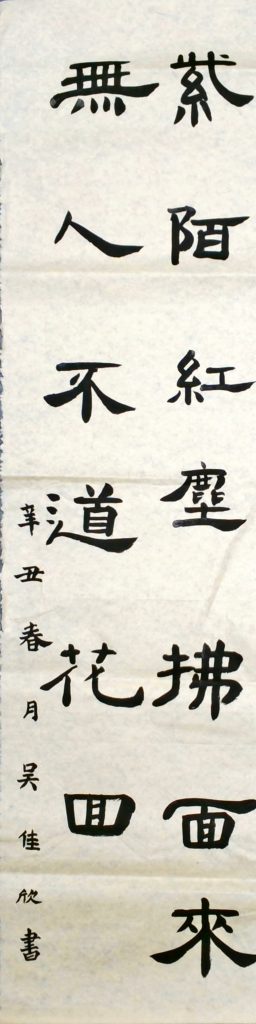 紫陌紅塵拂面來
無人不道花回
辛丑春月吴佳欣書